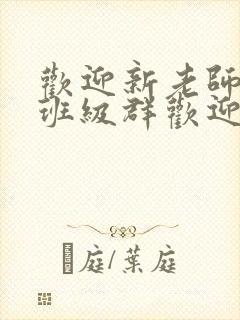 歡迎新老師
班級群歡迎
庭/葉庭